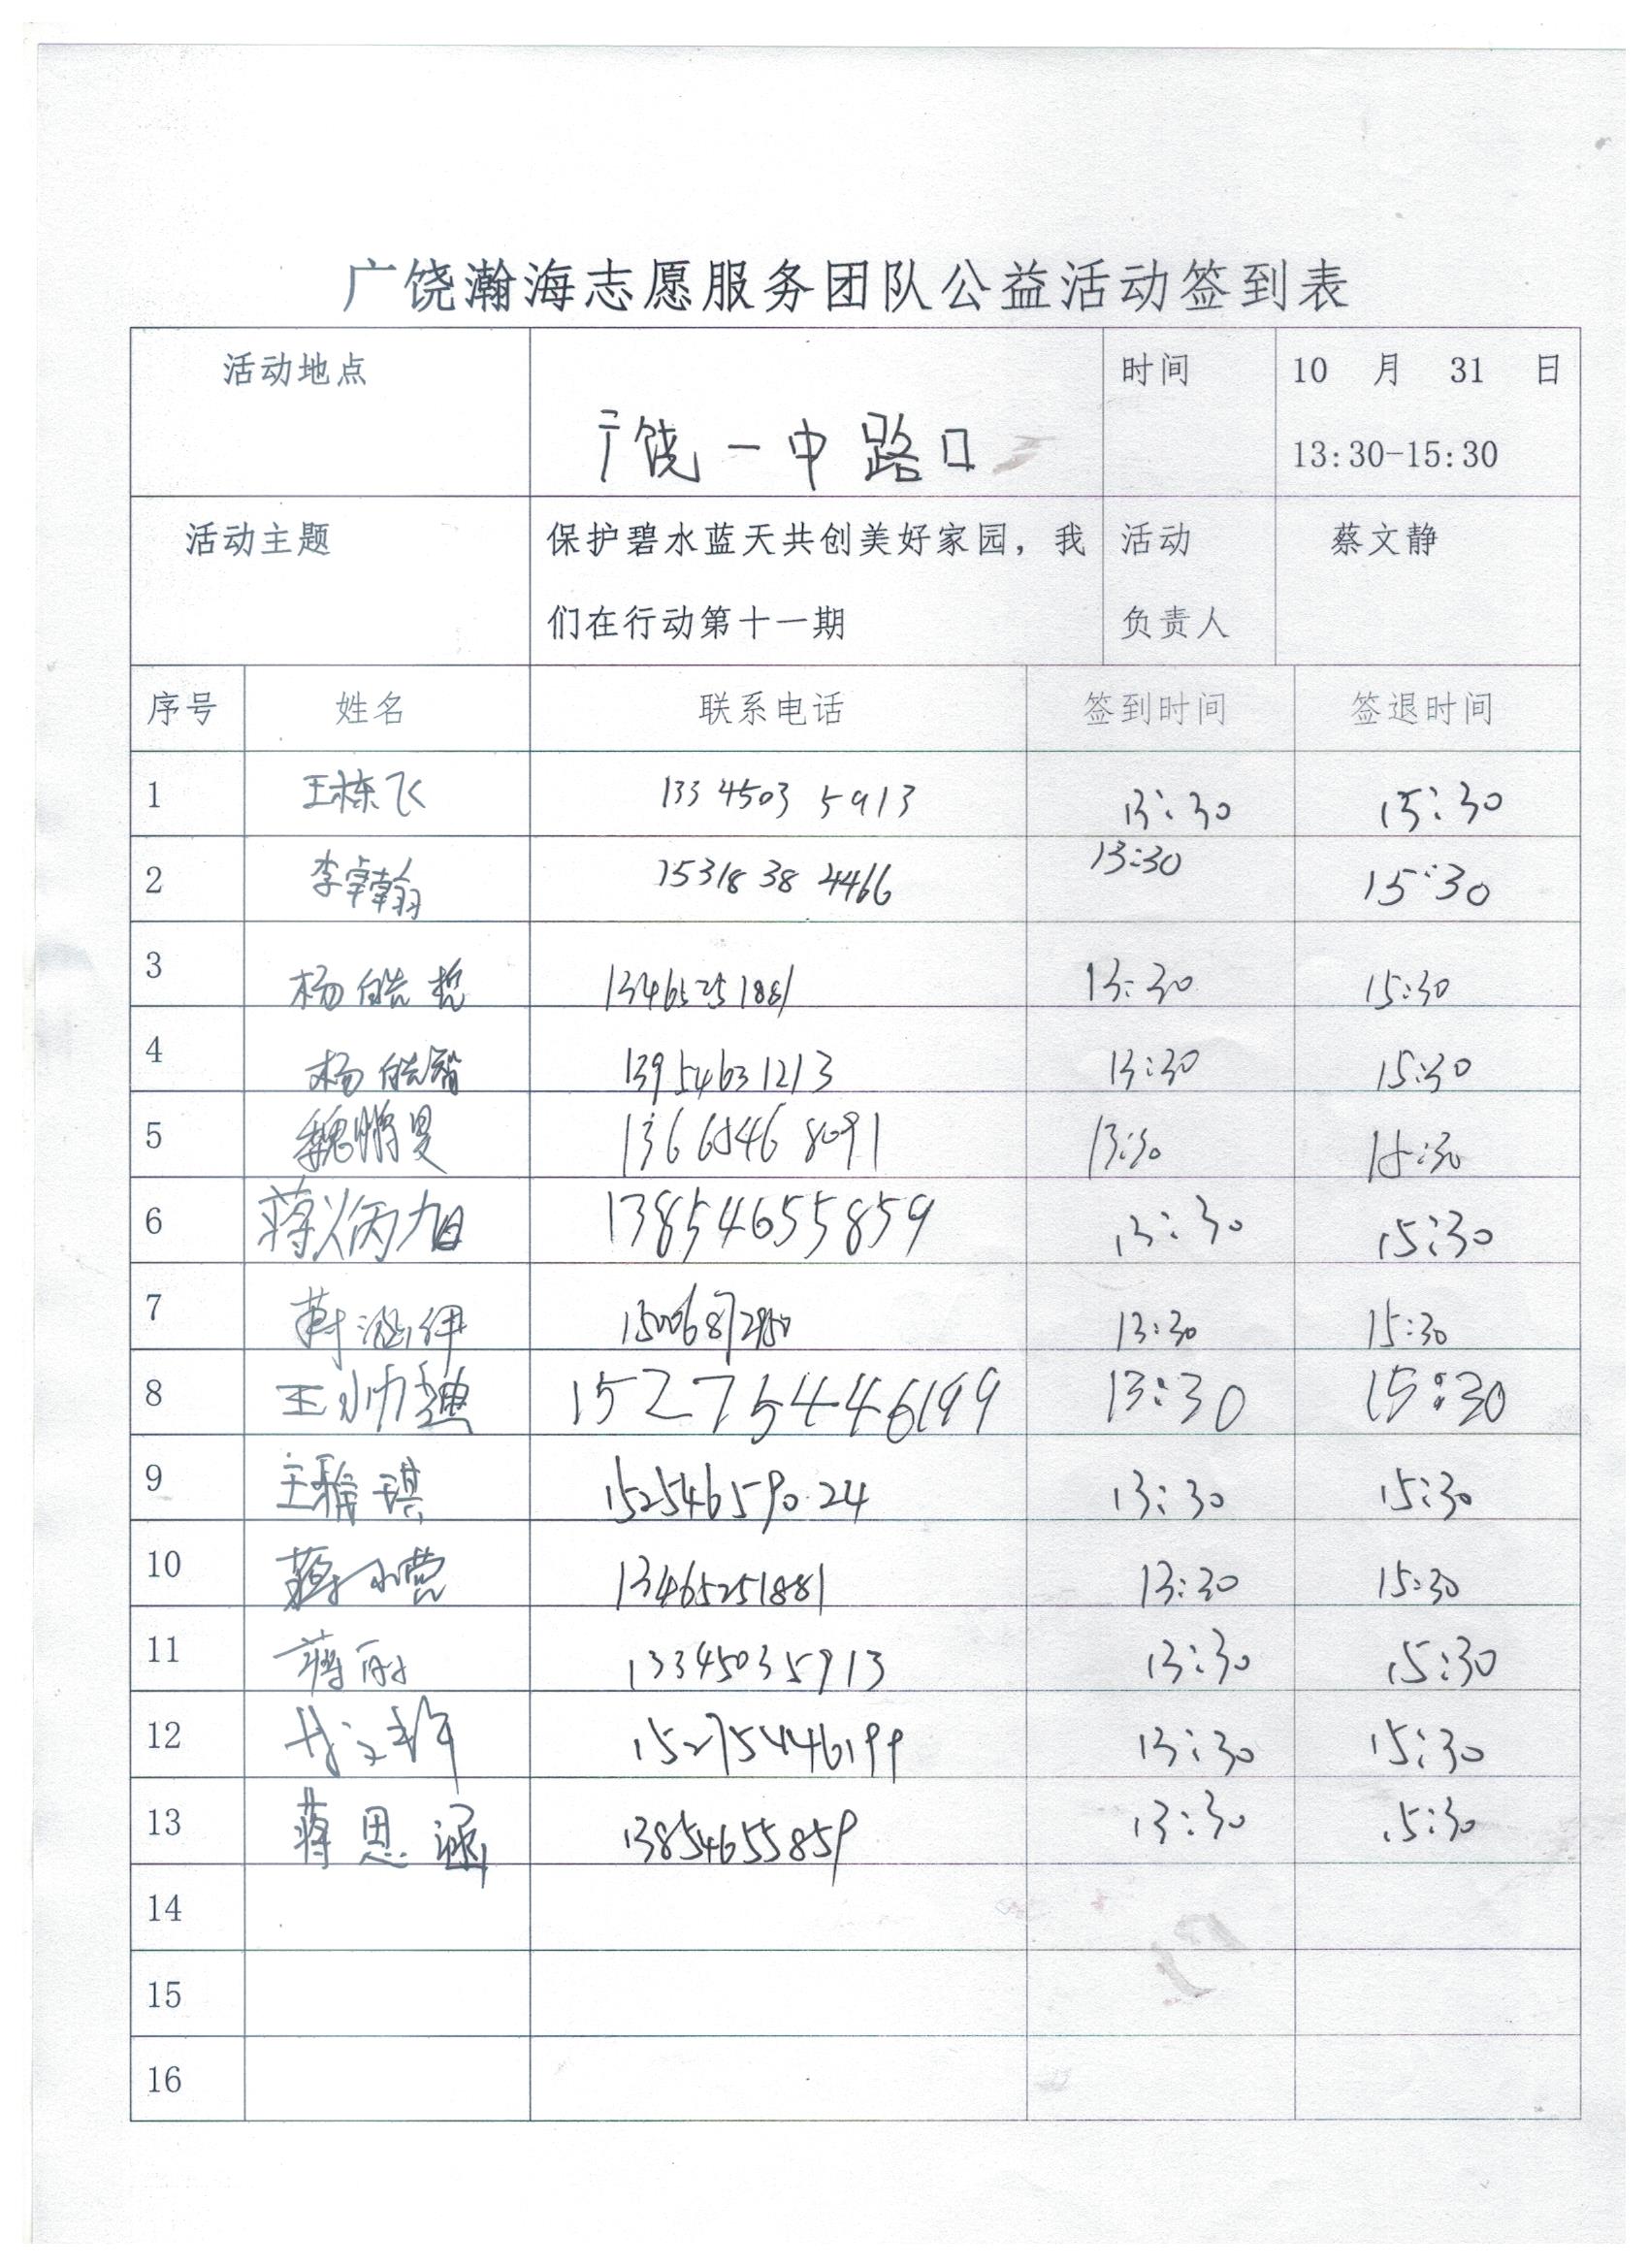 广饶瀚海志愿服务团队公益活动签到表
活动地点 广饶一中路口 时间 10 月 31 日
13:30-15:30
活动主题 保护碧水蓝天共创美好家园，我 活动 蔡文静
们在行动第十一期 负责人
序号 姓名 联系电话 签到时间 签退时间
1 王栋飞 13345035913 13:30 15:30
2 李卓翰 15318384466 13:30 15:30
3 杨皓哲 13465251881 13:30 15:30
4 杨皓智 13954631213 13:30 15:30
5 魏鹏旻 13665468091 13:30 15:30
6 蒋炳旭 13854655859 13:30 15:30
7 13:30 15:30
8 王帅迪 15275446199 13:30 15:30
9 王雅琪 15254659024 13:30 15:30
10 蒋小营 13465251881 13:30 15:30
11 蒋丽 13345035913 13:30 15:30
12 15275446199 13:30 15:30
13 蒋思涵 13854655859 13:30 15:30
14
15
16